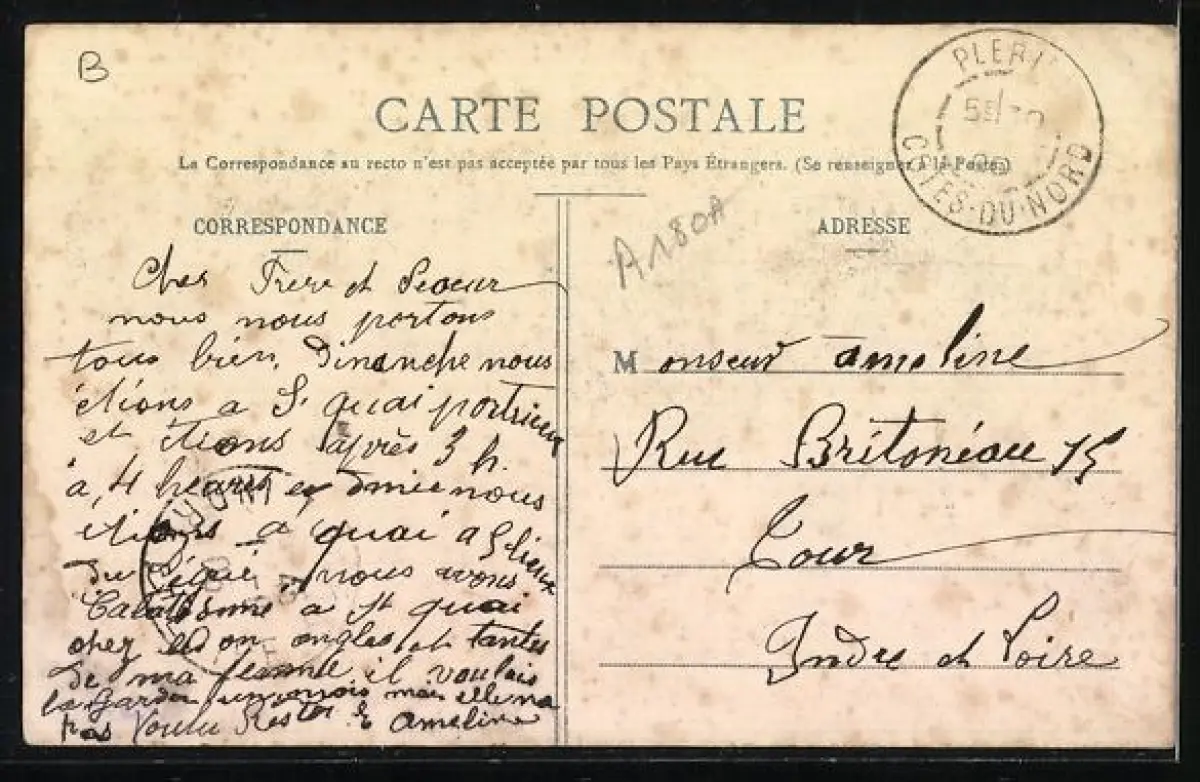 B
CARTE POSTALE
La Correspondance au recto n'est pas acceptée par tous les Pays Étrangers. (Se renseigner à la Poste)
PLERI
CÔTES-DU-NORD
CORRESPONDANCE
ADRESSE
A180A
Cher Frere et Seoeur
nous nous portons
tous bien. Dimanche nous
étions a St quai portrieux
et étions après 3 h.
à 4 heures et dmie nous
étions a quai a
du nous avons
a St quai
chez on ongles et tantes
De ma femme il voulais
la garder un mois mais elle na
pas Voulu Rester Ameline
Monseur ameline
Rue Britonéau 75
Tour
Indre et Loire